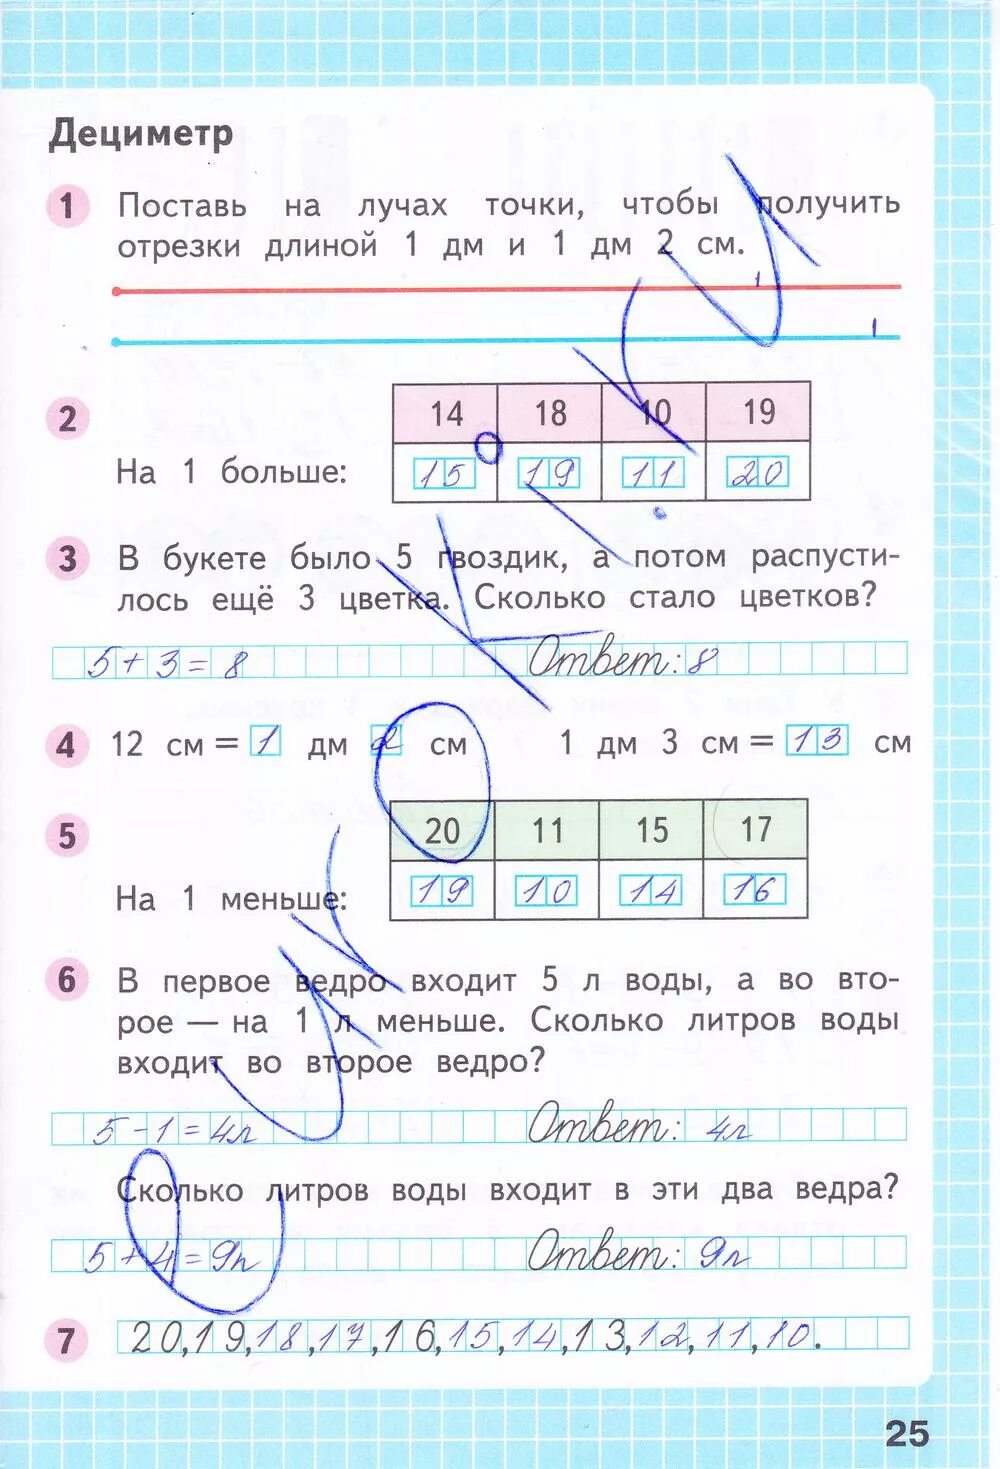 Дециметр
1 Поставь на лучах точки, чтобы получить
отрезки длиной 1 дм и 1 дм 2 см.
2 14 18 10 19
На 1 больше: 15 19 11 20
3 В букете было 5 гвоздик, а потом распусти-
лось ещё 3 цветка. Сколько стало цветков?
5+3=8 Ответ: 8
4 12 см = 1 дм 2 см 1 дм 3 см = 13 см
5 20 11 15 17
На 1 меньше: 19 10 14 16
6 В первое ведро входит 5 л воды, а во вто-
рое — на 1 л меньше. Сколько литров воды
входит во второе ведро?
5-1=4л Ответ: 4л
Сколько литров воды входит в эти два ведра?
5+4=9л Ответ: 9л
7 20,19,18,17,16,15,14,13,12,11,10.
25